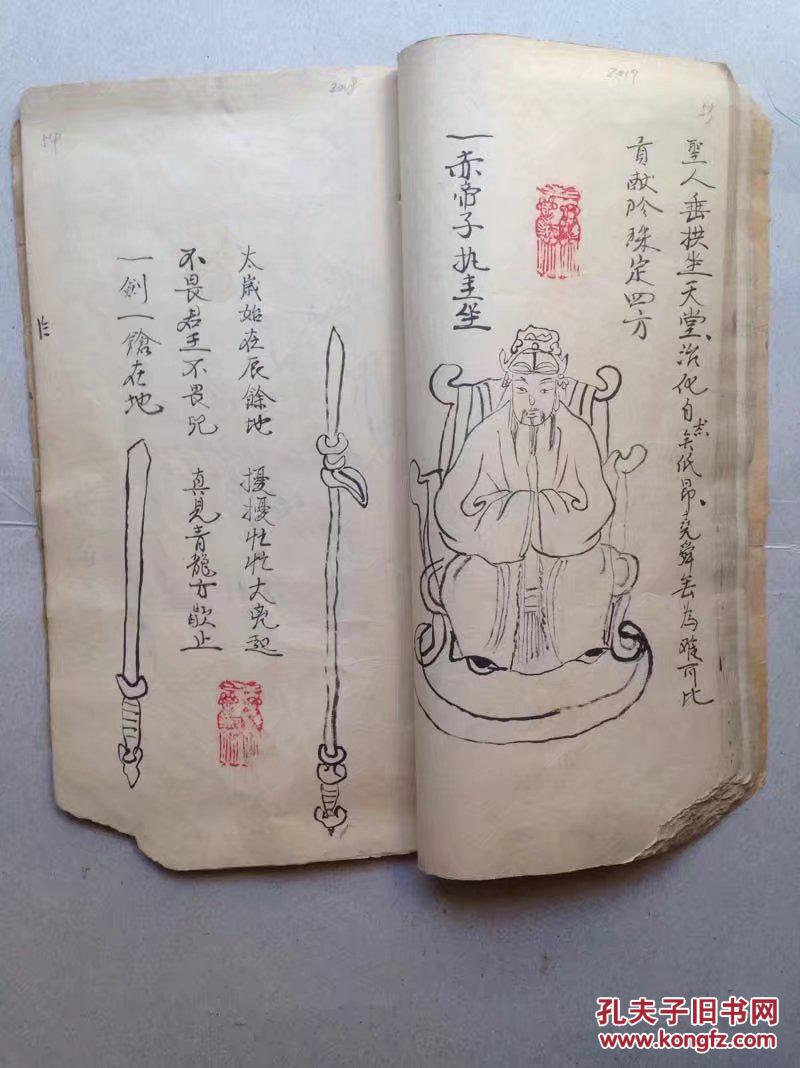 2019
聖人垂拱坐天堂、治化自 低昂、堯舜 為 可比
志
貢献 珠定四方
一赤帝子执圭坐
2018
太歲始在辰餘地 擾擾忙忙大 起
不畏君王不畏 真見青龍方歇止
一劍一鎗在地
孔夫子旧书网
www.kongfz.com